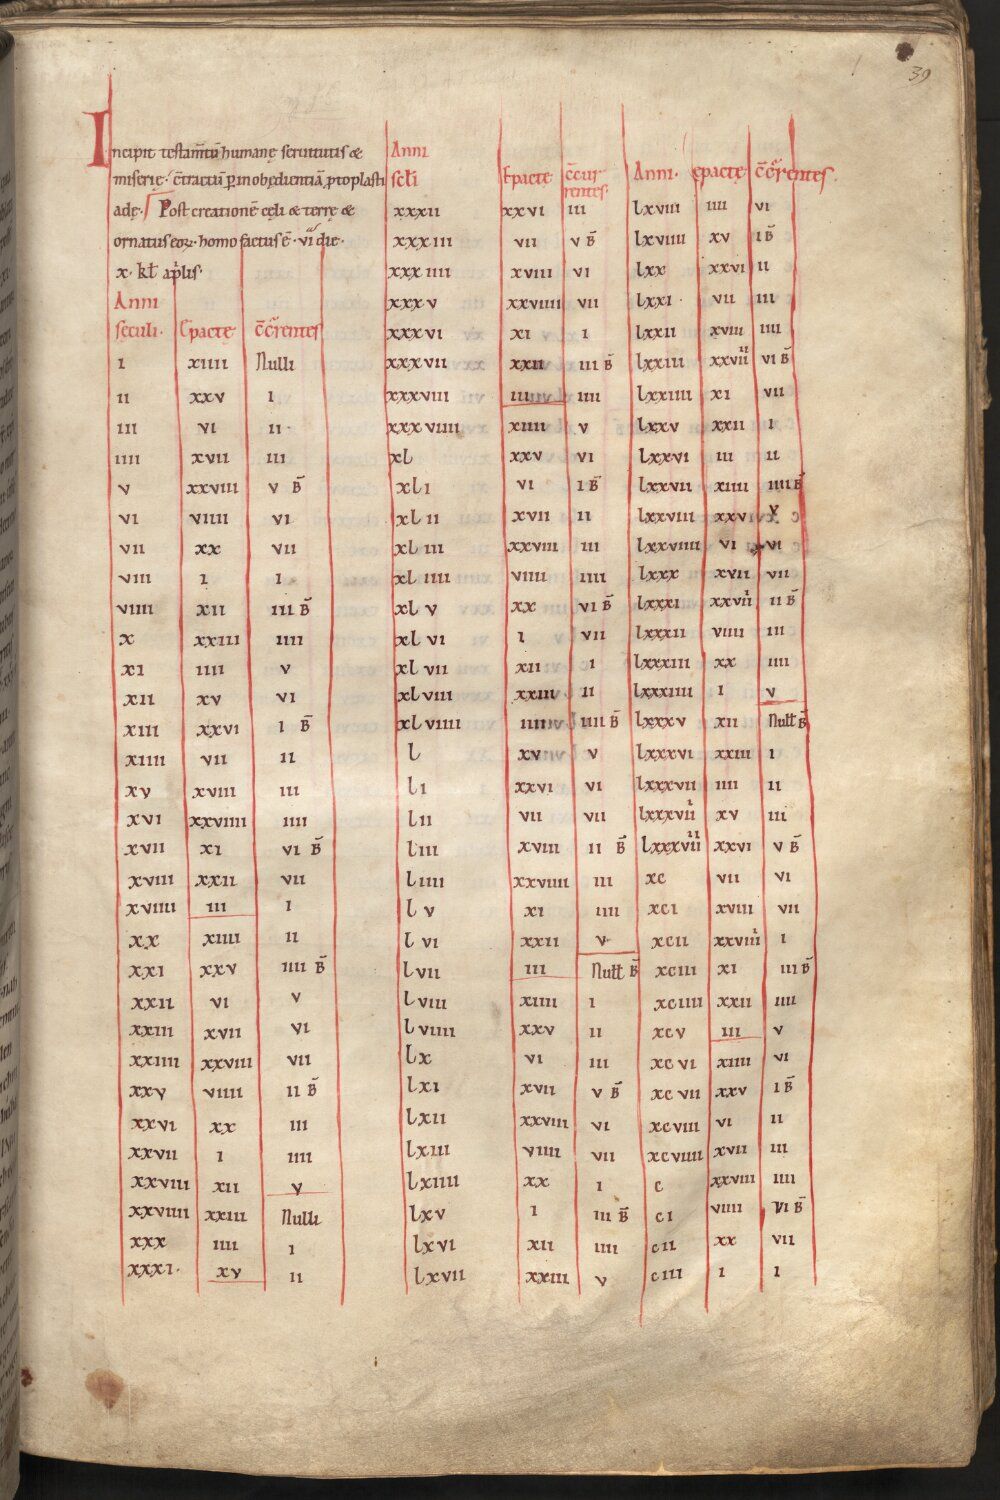 39
Incipit testam̄tū humanę seruitutis &
miserię· c̄tractum p̱ inobędientiā ꝓtoplasti
adę· Post creationē cęli & terrę &
ornatus eoꝝ· homo factus ē· vi die·
x· kł aplis·
Anni
seculi· Epactę c̄c̄rentes
i xiiii Nulli
ii xxv i
iii vi ii
iiii xvii iii
v xxviii v B̄
vi viiii vi
vii xx vii
viii i i
viiii xii iii B̄
x xxiii iiii
xi iiii v
xii xv vi
xiii xxvi i B̄
xiiii vii ii
xv xviii iii
xvi xxviiii iiii
xvii xi vi B̄
xviii xxii vii
xviiii iii i
xx xiiii ii
xxi xxv iiii B̄
xxii vi v
xxiii xvii vi
xxiiii xxviii vii
xxv viiii ii B̄
xxvi xx iii
xxvii i iiii
xxviii xii v
xxviiii xxiii Nulli
xxx iiii i
xxxi· xv ii
Anni
scłi Epacte c̄cur
rentes·
xxxii xxvi iii
xxxiii vii v B̄
xxxiiii xviii vi
xxxv xxviiii vii
xxxvi xi i
xxxvii xxii iii B̄
xxxviii iii iiii
xxxviiii xiiii v
xl xxv vi
xli vi i B̄
xlii xvii ii
xliii xxviii iii
xliiii viiii iiii
xlv xx vi B̄
xlvi i vii
xlvii xii i
xlviii xxiii ii
xlviiii iiii iiii B̄
l xv v
li xxvi vi
lii vii vii
liii xviii ii B̄
liiii xxviiii iii
lv xi iiii
lvi xxii v
lvii iii Nułł B̄
lviii xiiii i
lviiii xxv ii
lx vi iii
lxi xvii v B̄
lxii xxviii vi
lxiii viiii vii
lxiiii xx i
lxv i iii B̄
lxvi xii iiii
lxvii xxiii v
Anni· epactę c̄c̄rentes·
lxviii iiii vi
lxviiii xv i B̄
lxx xxvi ii
lxxi· vii iii
lxxii xviii iiii
lxxiii xxviiii vi B̄
lxxiiii xi vii
lxxv xxii i
lxxvi iii ii
lxxvii xiiii iiii B̄
lxxviii xxv v
lxxviiii vi vi
lxxx xvii vii
lxxxi xxviii ii B̄
lxxxii viiii iii
lxxxiii xx iiii
lxxxiiii i v
lxxxv xii Nułł B̄
lxxxvi xxiii i
lxxxvii iiii ii
lxxxviii xv iii
lxxxviiii xxvi v B̄
xc vii vi
xci xviii vii
xcii xxviiii i
xciii xi iii B̄
xciiii xxii iiii
xcv iii v
xcvi xiiii vi
xcvii xxv i B̄
xcviii vi ii
xcviiii xvii iii
c xxviii iiii
ci viiii vi B̄
cii xx vii
ciii i i